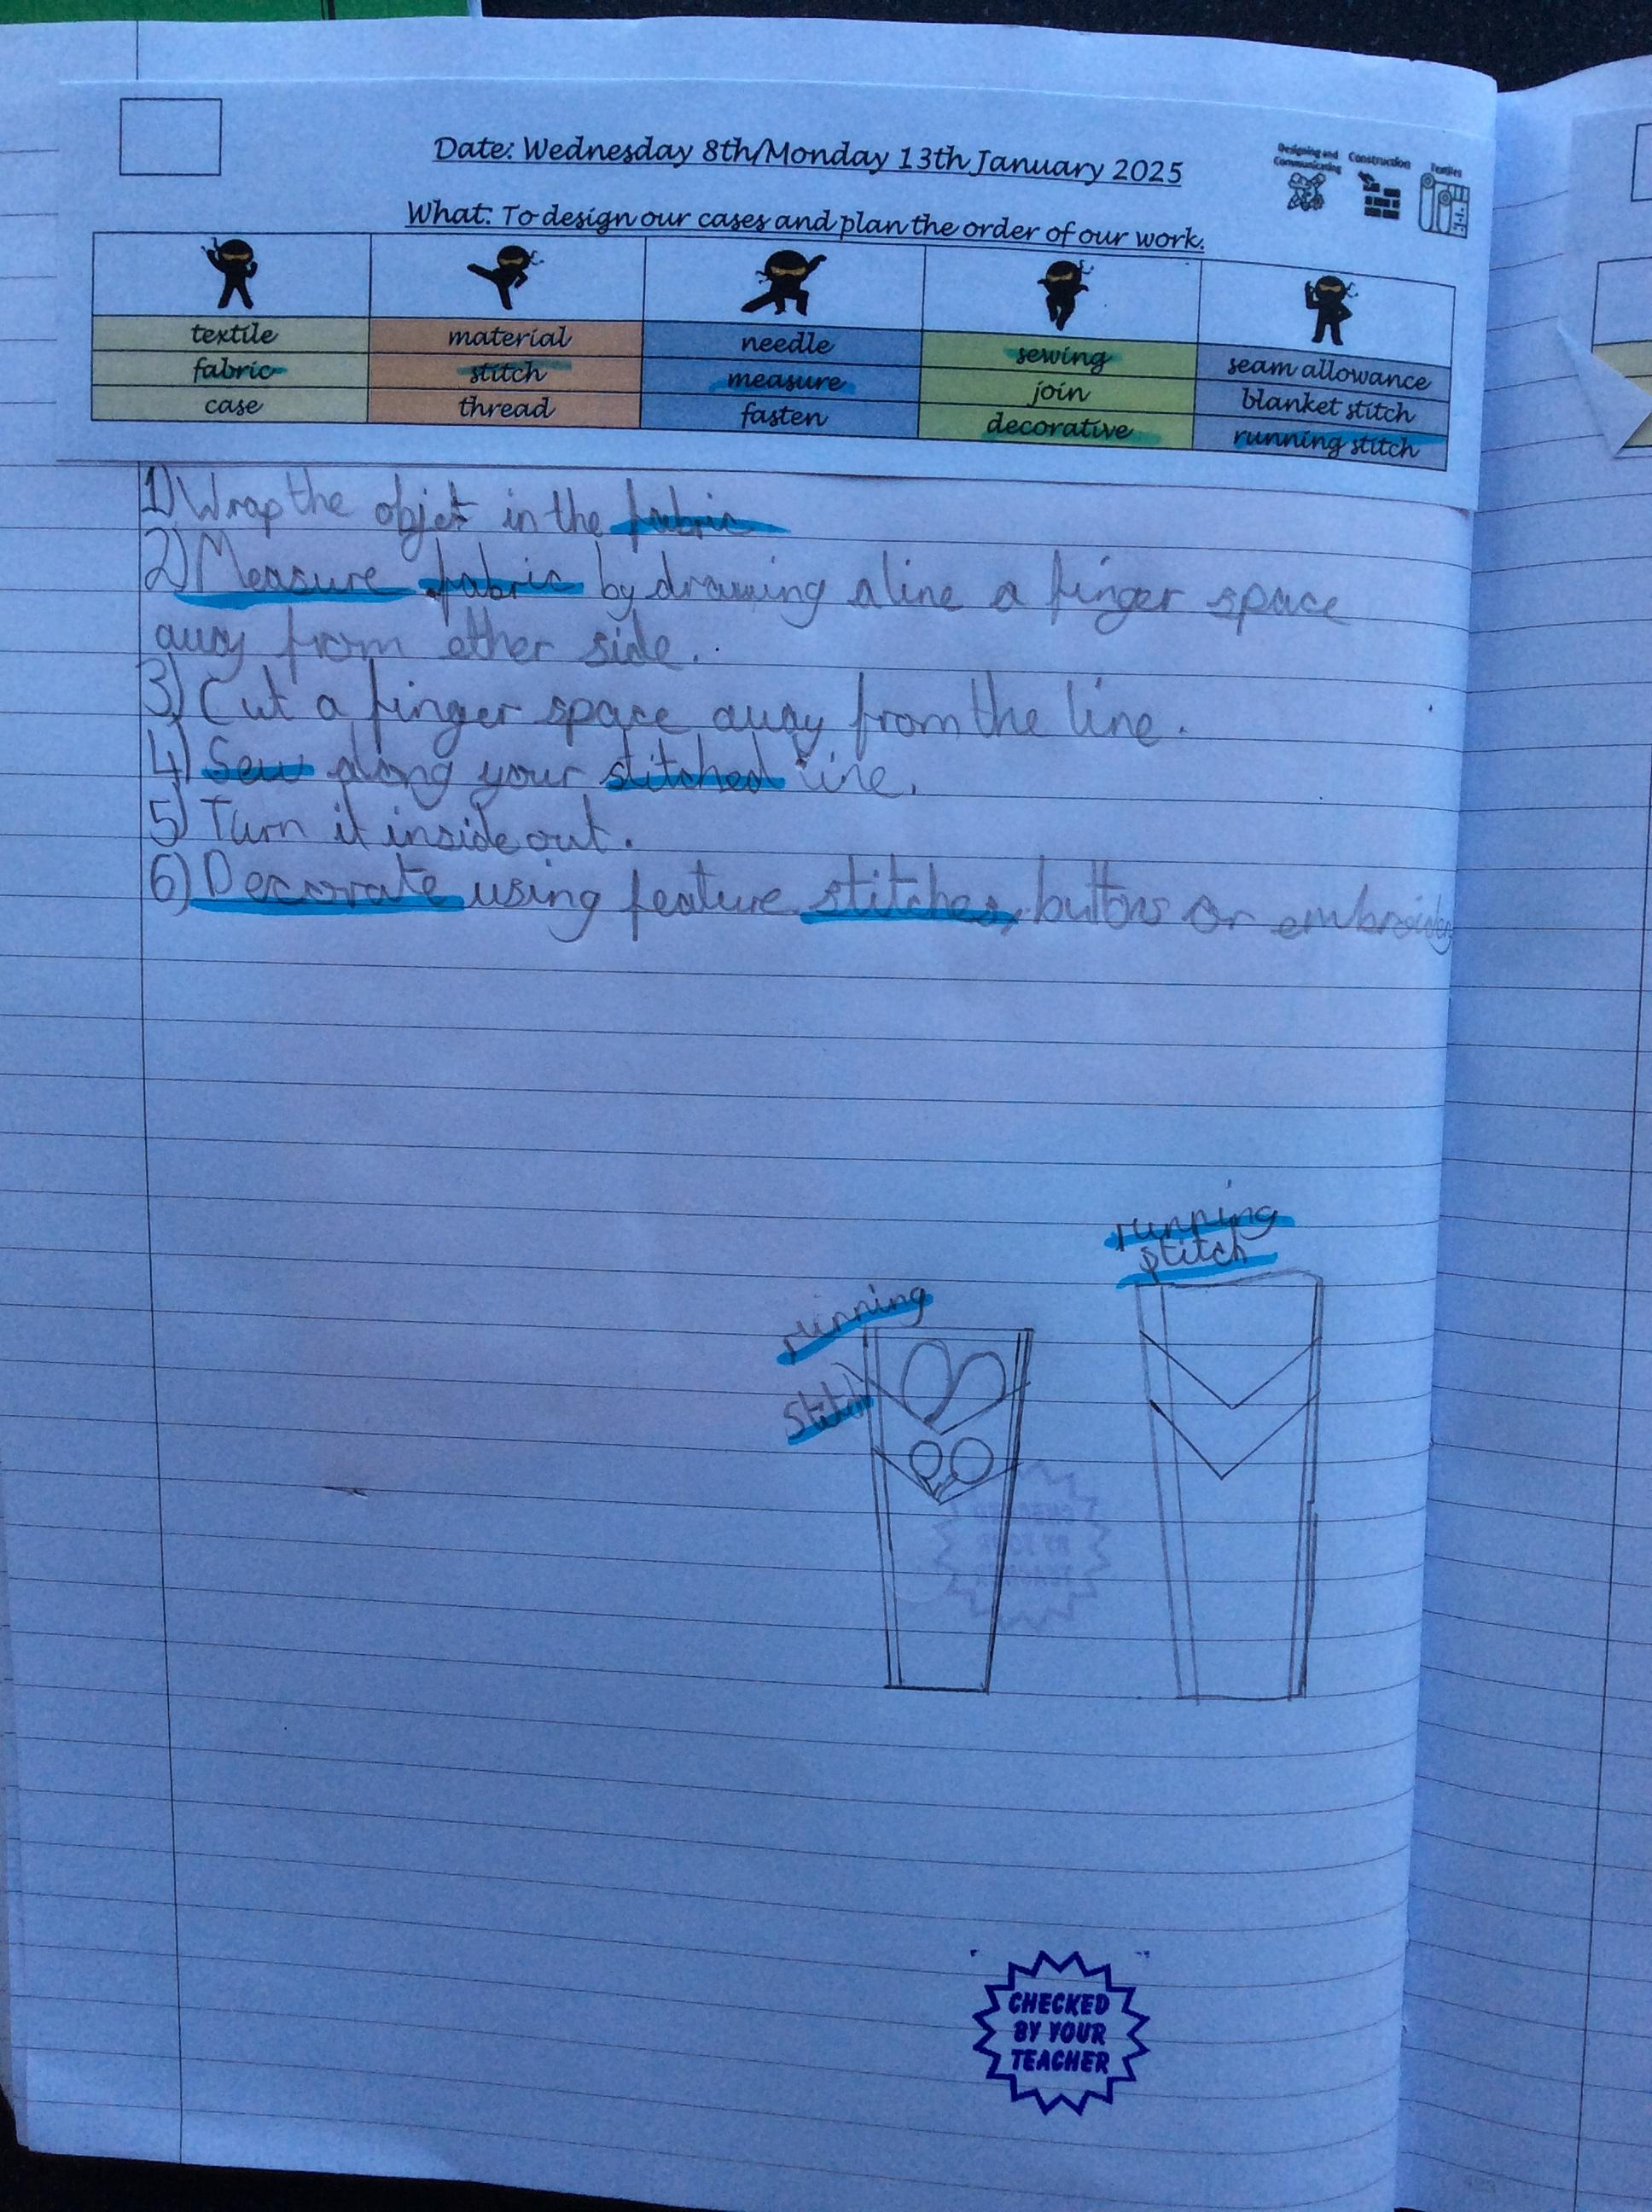 Date: Wednesday 8th/Monday 13th January 2025
Designing and Communicating
Construction
Textiles
What: To design our cases and plan the order of our work.
textile material needle sewing seam allowance
fabric stitch measure join blanket stitch
case thread fasten decorative running stitch
1) Wrap the objet in the fabric
2) Measure fabric by drawing a line a finger space
away from ether side.
3) Cut a finger space away from the line.
4) Sew along your stitched line.
5) Turn it inside out.
6) Decorate using feature stitches, buttons or embroidery
running
stitch
running
stitch
CHECKED
BY YOUR
TEACHER
CHECKED
BY YOUR
TEACHER